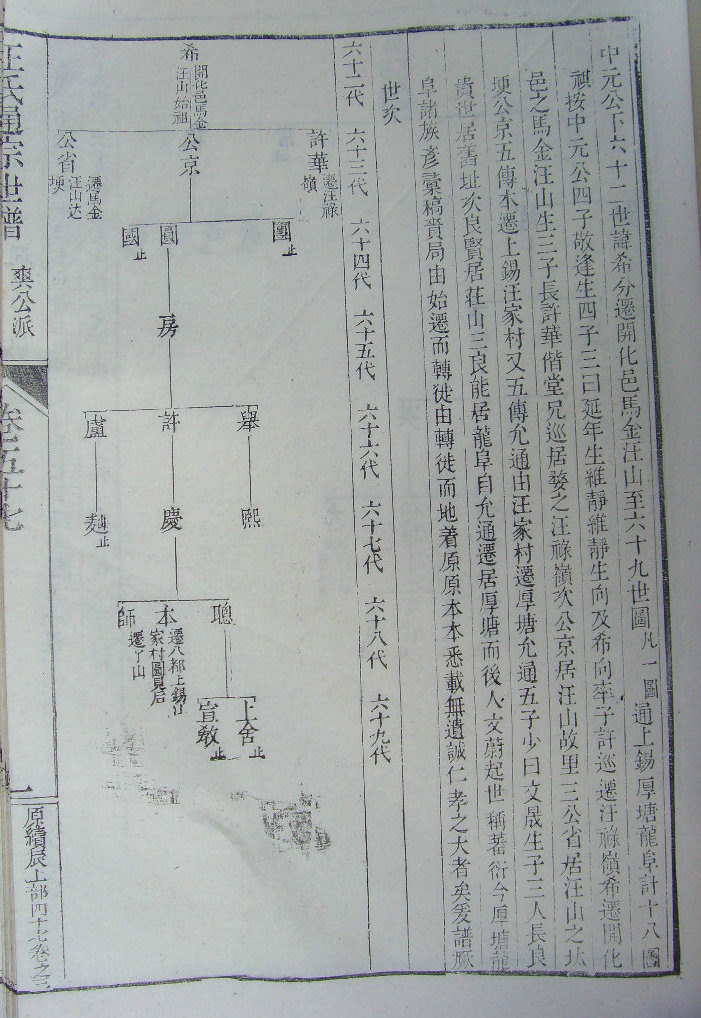 中元公下六十二世諱希分遷開化邑馬金汪山至六十九世圖凡一圖通上錫厚塘龍阜計十八圖
祺按中元公四子敬逢生四子三曰延年生維靜維靜生向及希向率子許巡遷汪祿嶺希遷開化
邑之馬金汪山生三子長許華偕堂兄巡居婺之汪祿嶺次公京居汪山故里三公省居汪山之塘
埂公京五傳本遷上錫汪家村又五傳允通由汪家村遷厚塘允通五子少曰文晟生子三人長良
貴世居舊址次良賢居莊山三良能居龍阜自允通遷居厚塘而後人文蔚起世稱蕃衍今厚塘龍
阜諸族彥彙稿賫局由始遷而轉徙由轉徙而地着原原本本悉載無遺誠仁孝之大者矣爰譜厥
世次
六十二代 六十三代 六十四代 六十五代 六十六代 六十七代 六十八代 六十九代
希 開化邑馬金汪山始祖
許華 遷汪祿嶺
公京
公省 遷馬金汪山塘埂
團 止
圓
國 止
房
舉
許
盧
熙
慶
麪 止
聰
本 遷八都上錫汪家村圖見后
師 遷了山
上舍 止
宣教 止
汪氏通宗世譜
爽公派
卷之五十七
一
原續辰上部四十七卷之三